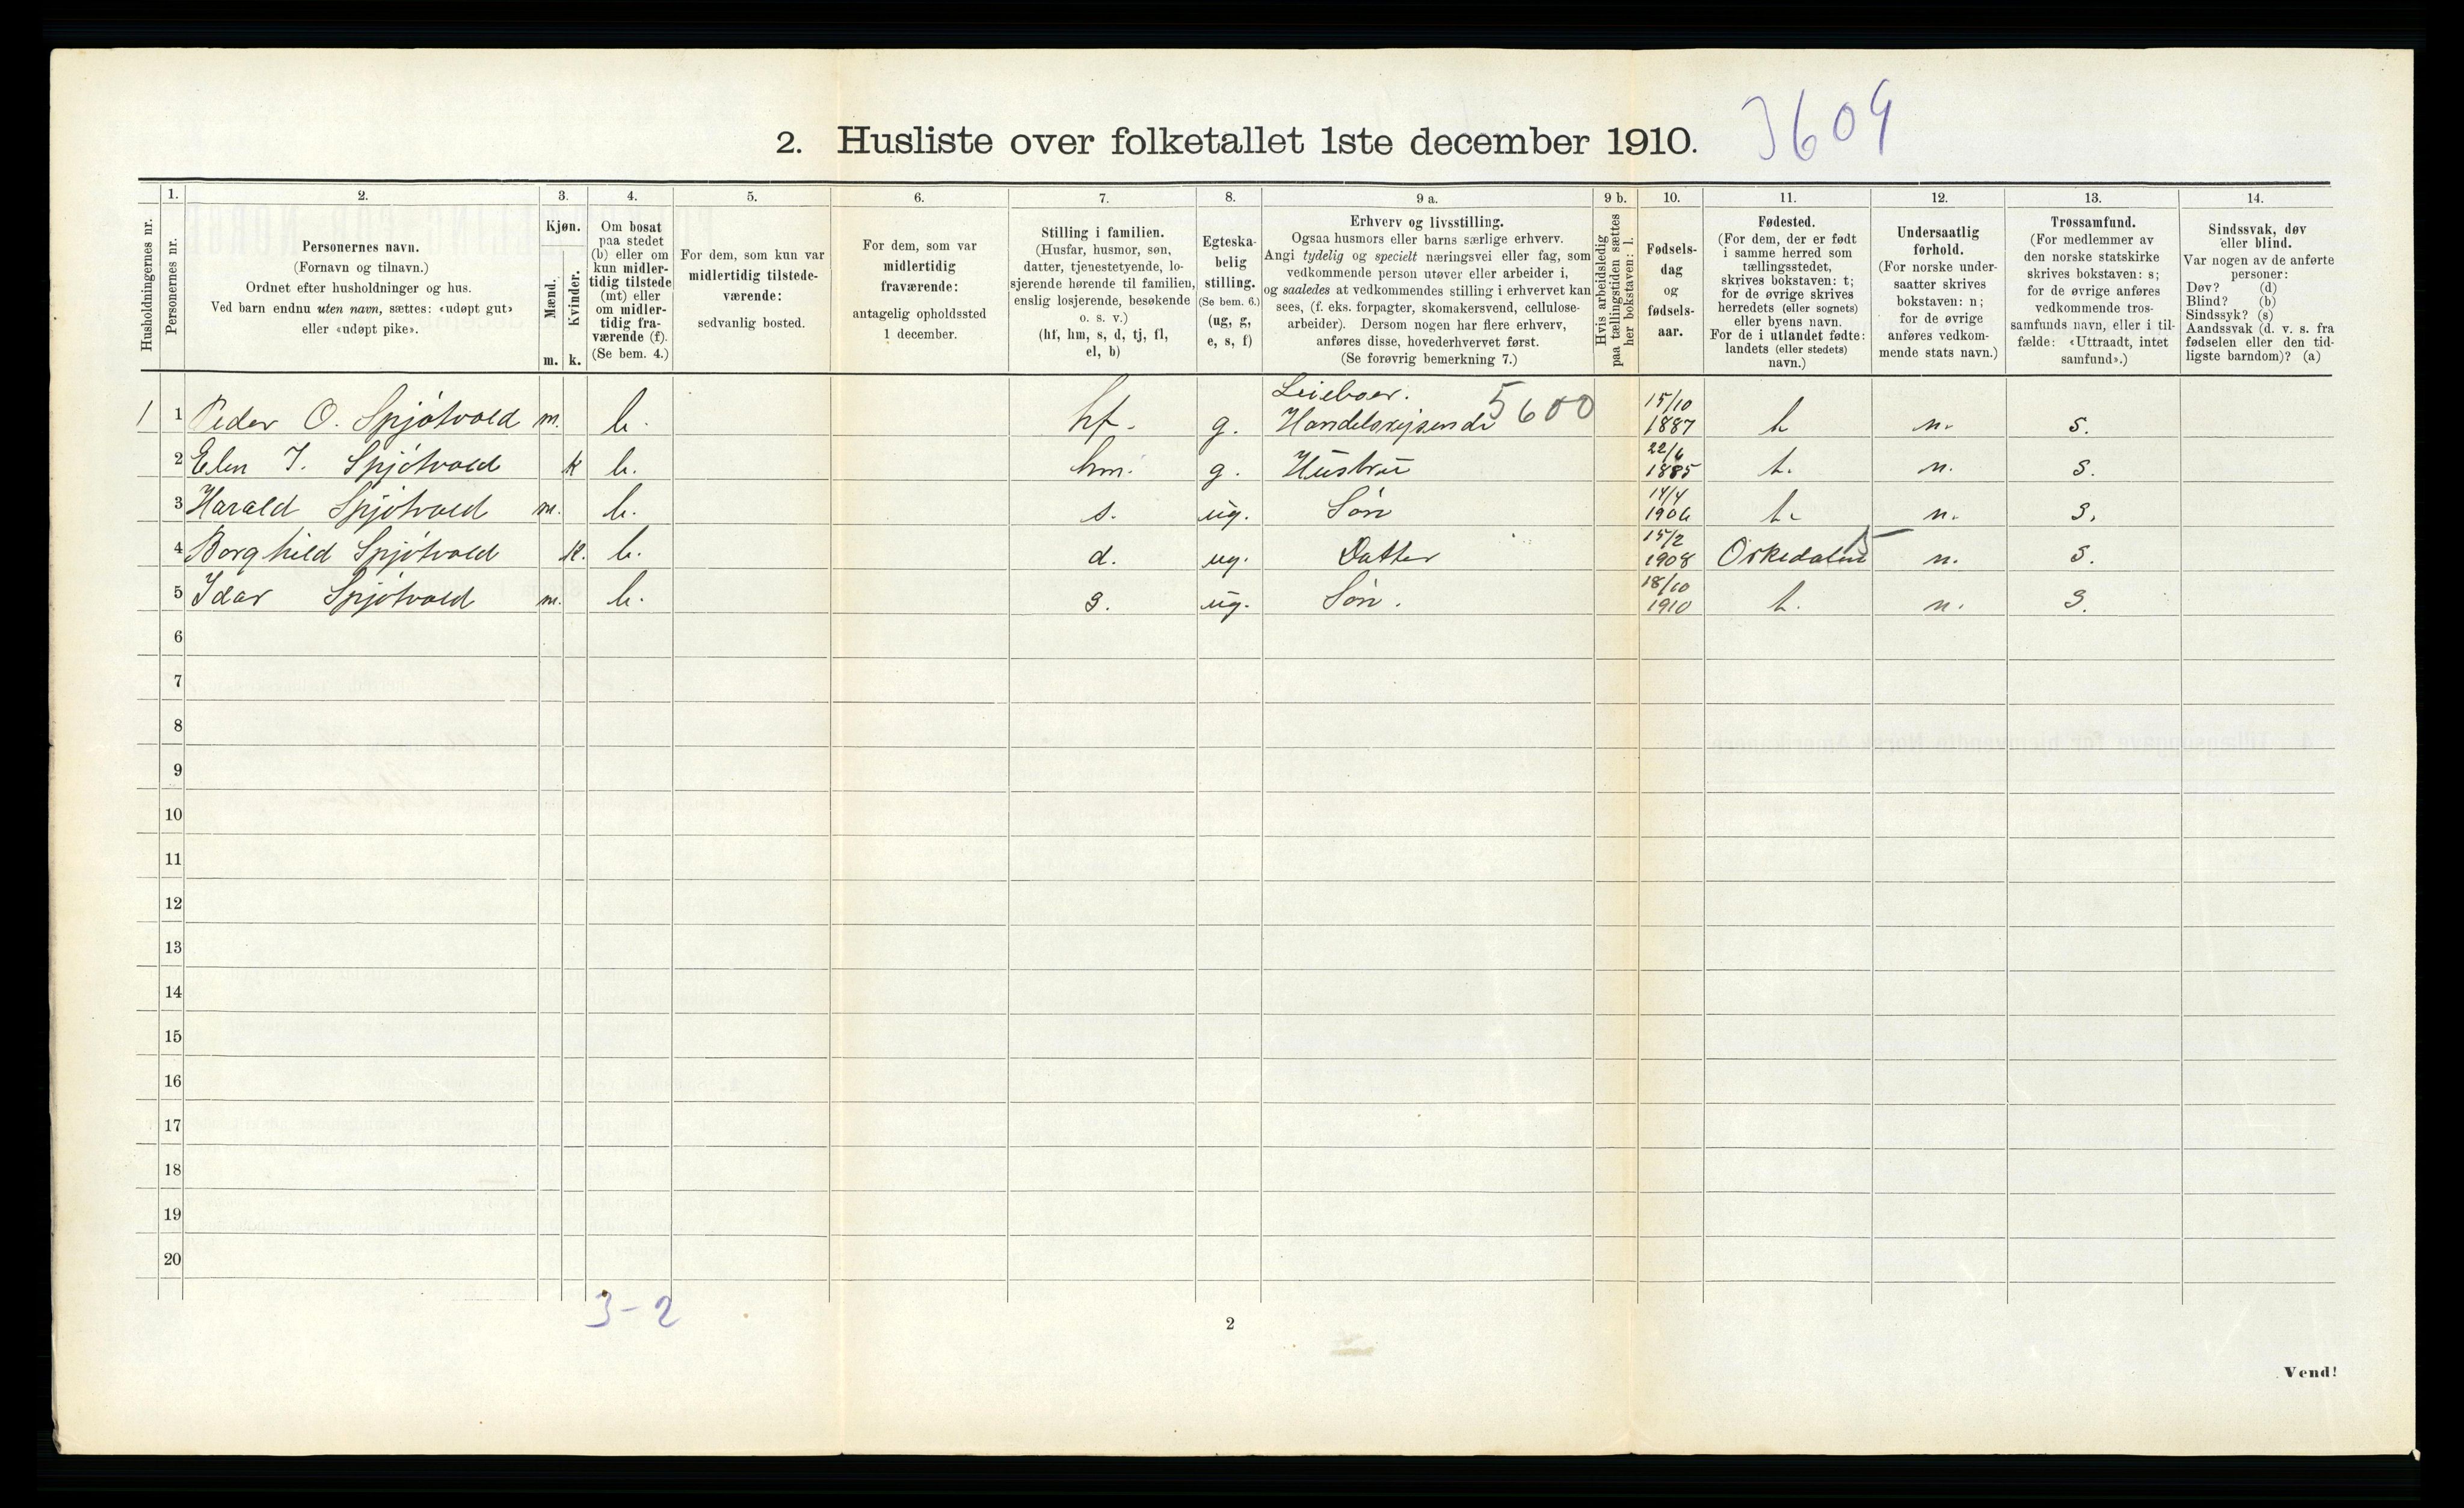 2. Husliste over folketallet 1ste december 1910. 3609
1. 2. 3. 4. 5. 6. 7. 8. 9 a. 9 b. 10. 11. 12. 13. 14.
Husholdningernes nr.
Personernes nr.
Personernes navn.
(Fornavn og tilnavn.)
Ordnet efter husholdninger og hus.
Ved barn endnu uten navn, sættes: «udøpt gut»
eller «udøpt pike».
Kjøn.
Mænd.
Kvinder.
m. k.
Om bosat
paa stedet
(b) eller om
kun midler-
tidig tilstede
(mt) eller
om midler-
tidig fra-
værende (f).
(Se bem. 4.)
For dem, som kun var
midlertidig tilstede-
værende:
sedvanlig bosted.
For dem, som var
midlertidig
fraværende:
antagelig opholdssted
1 december.
Stilling i familien.
(Husfar, husmor, søn,
datter, tjenestetyende, lo-
sjerende hørende til familien,
enslig losjerende, besøkende
o. s. v.)
(hf, hm, s, d, tj, fl,
el, b)
Egteska-
belig
stilling.
(Se bem. 6.)
(ug, g,
e, s, f)
Erhverv og livsstilling.
Ogsaa husmors eller barns særlige erhverv.
Angi tydelig og specielt næringsvei eller fag, som
vedkommende person utøver eller arbeider i,
og saaledes at vedkommendes stilling i erhvervet kan
sees, (f. eks. forpagter, skomakersvend, cellulose-
arbeider). Dersom nogen har flere erhverv,
anføres disse, hovederhvervet først.
(Se forøvrig bemerkning 7.)
Hvis arbeidsledig
paa tællingstiden sættes
her bokstaven: l.
Fødsels-
dag
og
fødsels-
aar.
Fødested.
(For dem, der er født
i samme herred som
tællingsstedet,
skrives bokstaven: t;
for de øvrige skrives
herredets (eller sognets)
eller byens navn.
For de i utlandet fødte:
landets (eller stedets)
navn.)
Undersaatlig
forhold.
(For norske under-
saatter skrives
bokstaven: n;
for de øvrige
anføres vedkom-
mende stats navn.)
Trossamfund.
(For medlemmer av
den norske statskirke
skrives bokstaven: s;
for de øvrige anføres
vedkommende tros-
samfunds navn, eller i til-
fælde: «Uttraadt, intet
samfund».)
Sindssvak, døv
eller blind.
Var nogen av de anførte
personer:
Døv? (d)
Blind? (b)
Sindssyk? (s)
Aandssvak (d. v. s. fra
fødselen eller den tid-
ligste barndom)? (a)
Leieboer. 15/10
1 1 Peder O. Spjøtvold m. b. hf. g. Handelsrejsende 5600 1887 t n. s.
22/6
2 Elen J. Spjøtvold k b. hm. g. Hustru 1885 t. n. s.
14/4
3 Harald Spjøtvold m. b. s. ug. Søn 1906 t. n. s.
15/2
4 Borghild Spjøtvold k. b. d. ug. Datter 1908 Orkedalen n. s.
18/10
5 Idar Spjøtvold m. b. s. ug. Søn. 1910 t. n. s.
6
7
8
9
10
11
12
13
14
15
16
17
18
19
20
3-2
2
Vend!